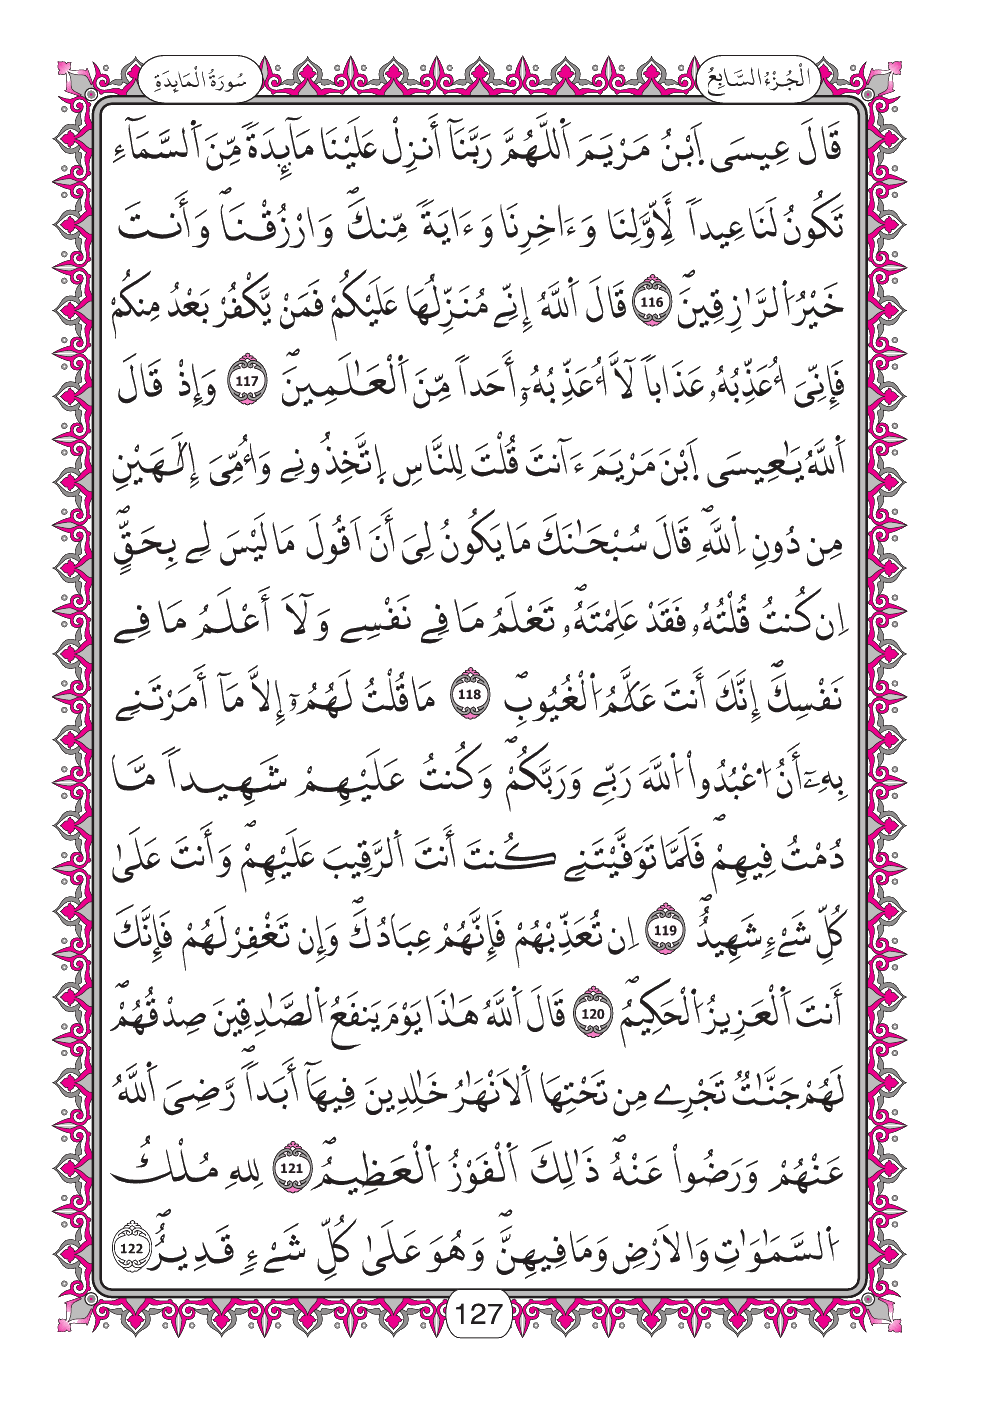 الْجُزْءُ السَّابِعُ
سُورَةُ الْمَائِدَةِ
قَالَ عِيسَى اَ۪بْنُ مَرْيَمَ اَللَّهُمَّ رَبَّنَآ أَنزِلْ عَلَيْنَا مَآئِدَةً مِّنَ اَلسَّمَآءِ
تَكُونُ لَنَا عِيداً لِّأَوَّلِنَا وَءَاخِرِنَا وَءَايَةً مِّنكَۖ وَارْزُقْنَاۖ وَأَنتَ
خَيْرُ اُ۬لرَّٰزِقِينَۖ 116 قَالَ اَ۬للَّهُ إِنِّے مُنَزِّلُهَا عَلَيْكُمْ فَمَنْ يَّكْفُرْ بَعْدُ مِنكُمْ
فَإِنِّيَ أُعَذِّبُهُۥ عَذَاباً لَّآ أُعَذِّبُهُۥٓ أَحَداً مِّنَ اَ۬لْعَٰلَمِينَۖ 117 وَإِذْ قَالَ
اَ۬للَّهُ يَٰعِيسَى اَ۪بْنَ مَرْيَمَ ءَآنتَ قُلْتَ لِلنَّاسِ اِ۪تَّخِذُونِے وَأُمِّيَ إِلَٰهَيْنِ
مِن دُونِ اِ۬للَّهِۖ قَالَ سُبْحَٰنَكَ مَا يَكُونُ لِيَ أَنَ اَقُولَ مَا لَيْسَ لِے بِحَقٍّۖ
اِن كُنتُ قُلْتُهُۥ فَقَدْ عَلِمْتَهُۥۖ تَعْلَمُ مَا فِے نَفْسِے وَلَآ أَعْلَمُ مَا فِے
نَفْسِكَۖ إِنَّكَ أَنتَ عَلَّٰمُ اُ۬لْغُيُوبِۖ 118 مَا قُلْتُ لَهُمُۥٓ إِلَّا مَآ أَمَرْتَنِے
بِهِۦٓ أَنُ اُ۟عْبُدُواْ اُ۬للَّهَ رَبِّے وَرَبَّكُمْۖ وَكُنتُ عَلَيْهِمْ شَهِيداً مَّا
دُمْتُ فِيهِمْۖ فَلَمَّا تَوَفَّيْتَنِے كُنتَ أَنتَ اَ۬لرَّقِيبَ عَلَيْهِمْۖ وَأَنتَ عَلَىٰ
كُلِّ شَےْءٍ شَهِيدٌۖ 119 اِن تُعَذِّبْهُمْ فَإِنَّهُمْ عِبَادُكَۖ وَإِن تَغْفِرْ لَهُمْ فَإِنَّكَ
أَنتَ اَ۬لْعَزِيزُ اُ۬لْحَكِيمُۖ 120 قَالَ اَ۬للَّهُ هَٰذَا يَوْمَ يَنفَعُ اُ۬لصَّٰدِقِينَ صِدْقُهُمْۖ
لَهُمْ جَنَّٰتٌ تَجْرِے مِن تَحْتِهَا اَ۬لَانْهَٰرُ خَٰلِدِينَ فِيهَآ أَبَداًۖ رَّضِيَ اَ۬للَّهُ
عَنْهُمْ وَرَضُواْ عَنْهُۖ ذَٰلِكَ اَ۬لْفَوْزُ اُ۬لْعَظِيمُۖ 121 لِلهِ مُلْكُ
اُ۬لسَّمَٰوَٰتِ وَالَارْضِ وَمَا فِيهِنَّۖ وَهُوَ عَلَىٰ كُلِّ شَےْءٍ قَدِيرٌۖ 122
127